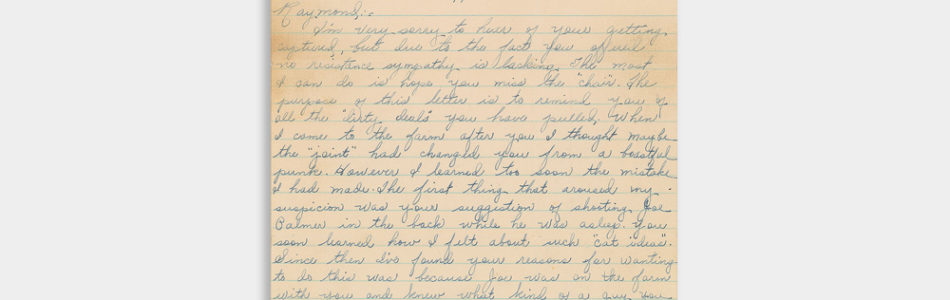 Raymond:-
I'm very sorry to hear of your getting
captured, but due to the fact you offered
no resistance sympathy is lacking. The most
I can do is hope you miss the "chair." The
purpose of this letter is to remind you of
all the "dirty deals" you have pulled. When
I came to the farm after you I thought maybe
the "joint" had changed you from a boastful
punk. However I learned too soon the mistake
I had made. The first thing that aroused my
suspicion was your suggestion of shooting Joe
Palmer in the back while he was asleep. You
soon learned how I felt about such "cat ideas".
Since then I've found your reasons for wanting
to do this was because Joe was on the farm
with you and knew what kind of a guy you